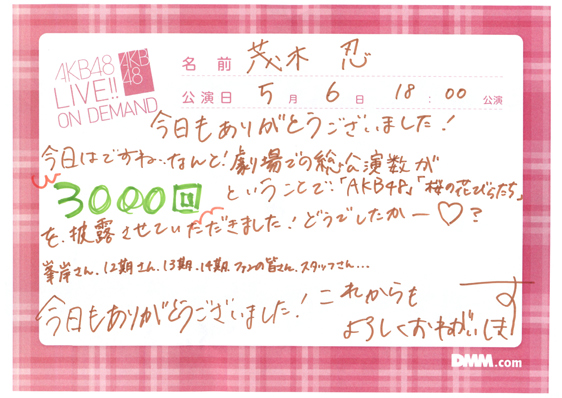 AKB48
LIVE!!
ON DEMAND
AKB
48
名 前 茂木 忍
公演日 5 月 6 日 18 : 00 公演
今日もありがとうございました!
今日はですね…なんと!劇場での総公演数が
3000回 ということで、「AKB48」「桜の花びらたち」
を披露させていただきました!どうでしたかー♡?
峯岸さん、12期さん、13期、14期、ファンの皆さん、スタッフさん…
今日もありがとうございました!これからも
よろしくおねがいします
DMM.com